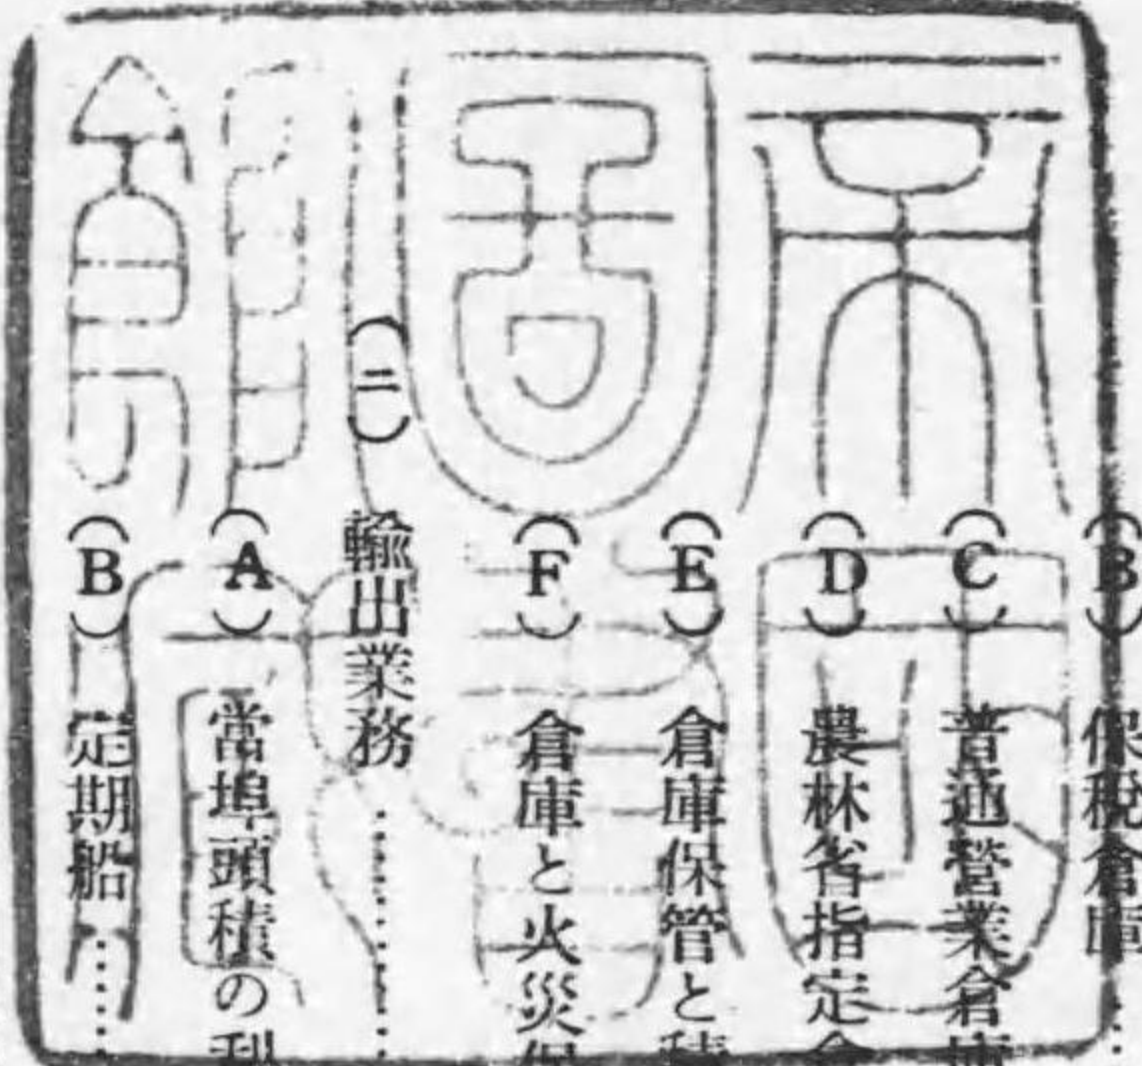 (B) 保稅倉庫……
(C) 普通營業倉庫
(D) 農林省指定倉
(E) 倉庫保管と積
(F) 倉庫と火災保
(二) 輸出業務……
(A) 當埠頭積の利
(B) 定期船……
帝國圖書館藏